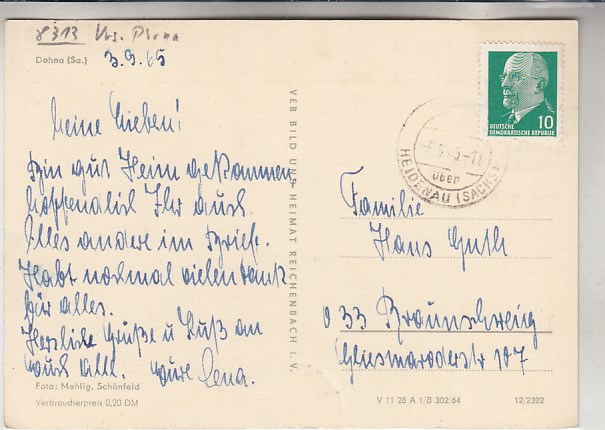 8313
Dohna (Sa.)
3.9.65
Meine Lieben!
Bin gut Heim gekommen
hoffendlich Ihr auch.
Alles andere im Brief.
Habt nochmal vielen Dank
für alles.
Herzliche Grüße u Kuß an
euch alle. Eure Lena.
Foto: Mehlig, Schönfeld
Verbraucherpreis 0,20 DM
VEB BILD UND HEIMAT REICHENBACH I. V.
DEUTSCHE 10
DEMOKRATISCHE REPUBLIK
über
HEIDENAU (SACHS)
Familie
Hans Guth
033 Braunschweig
Gliesmaroderstr 107
V 11 28 A 1/B 302/64
12/2322